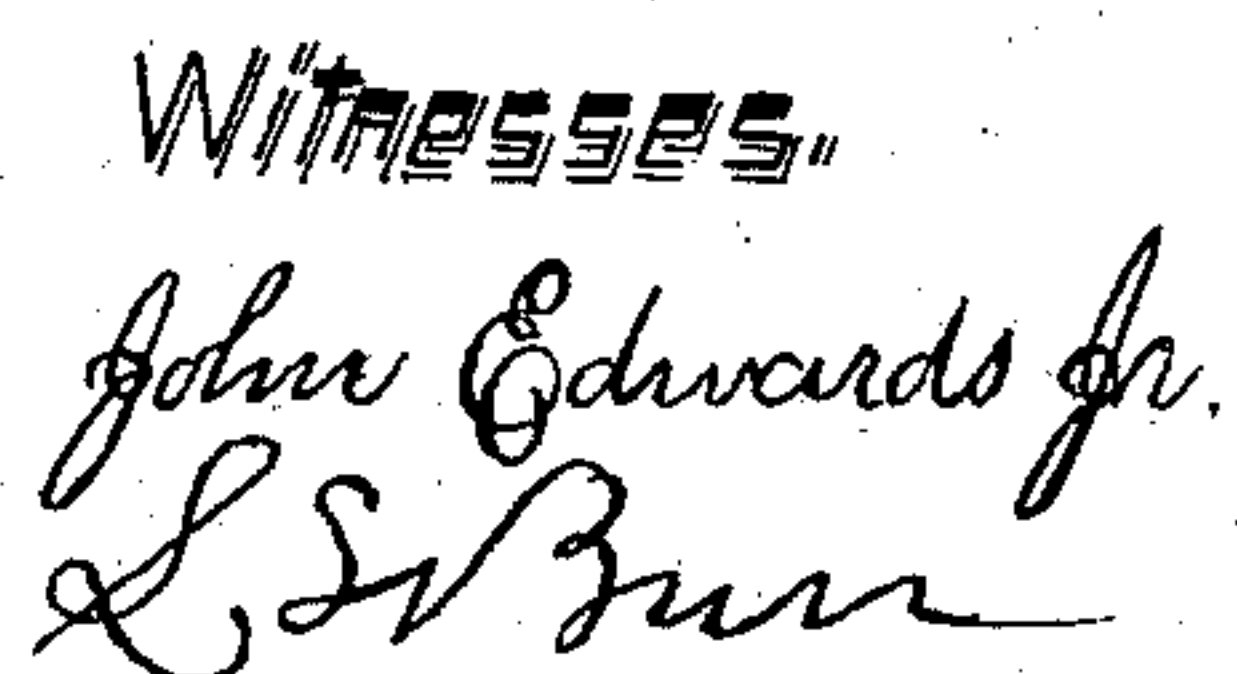 Witnesses.
John Edwards Jr.
L. S. Burr